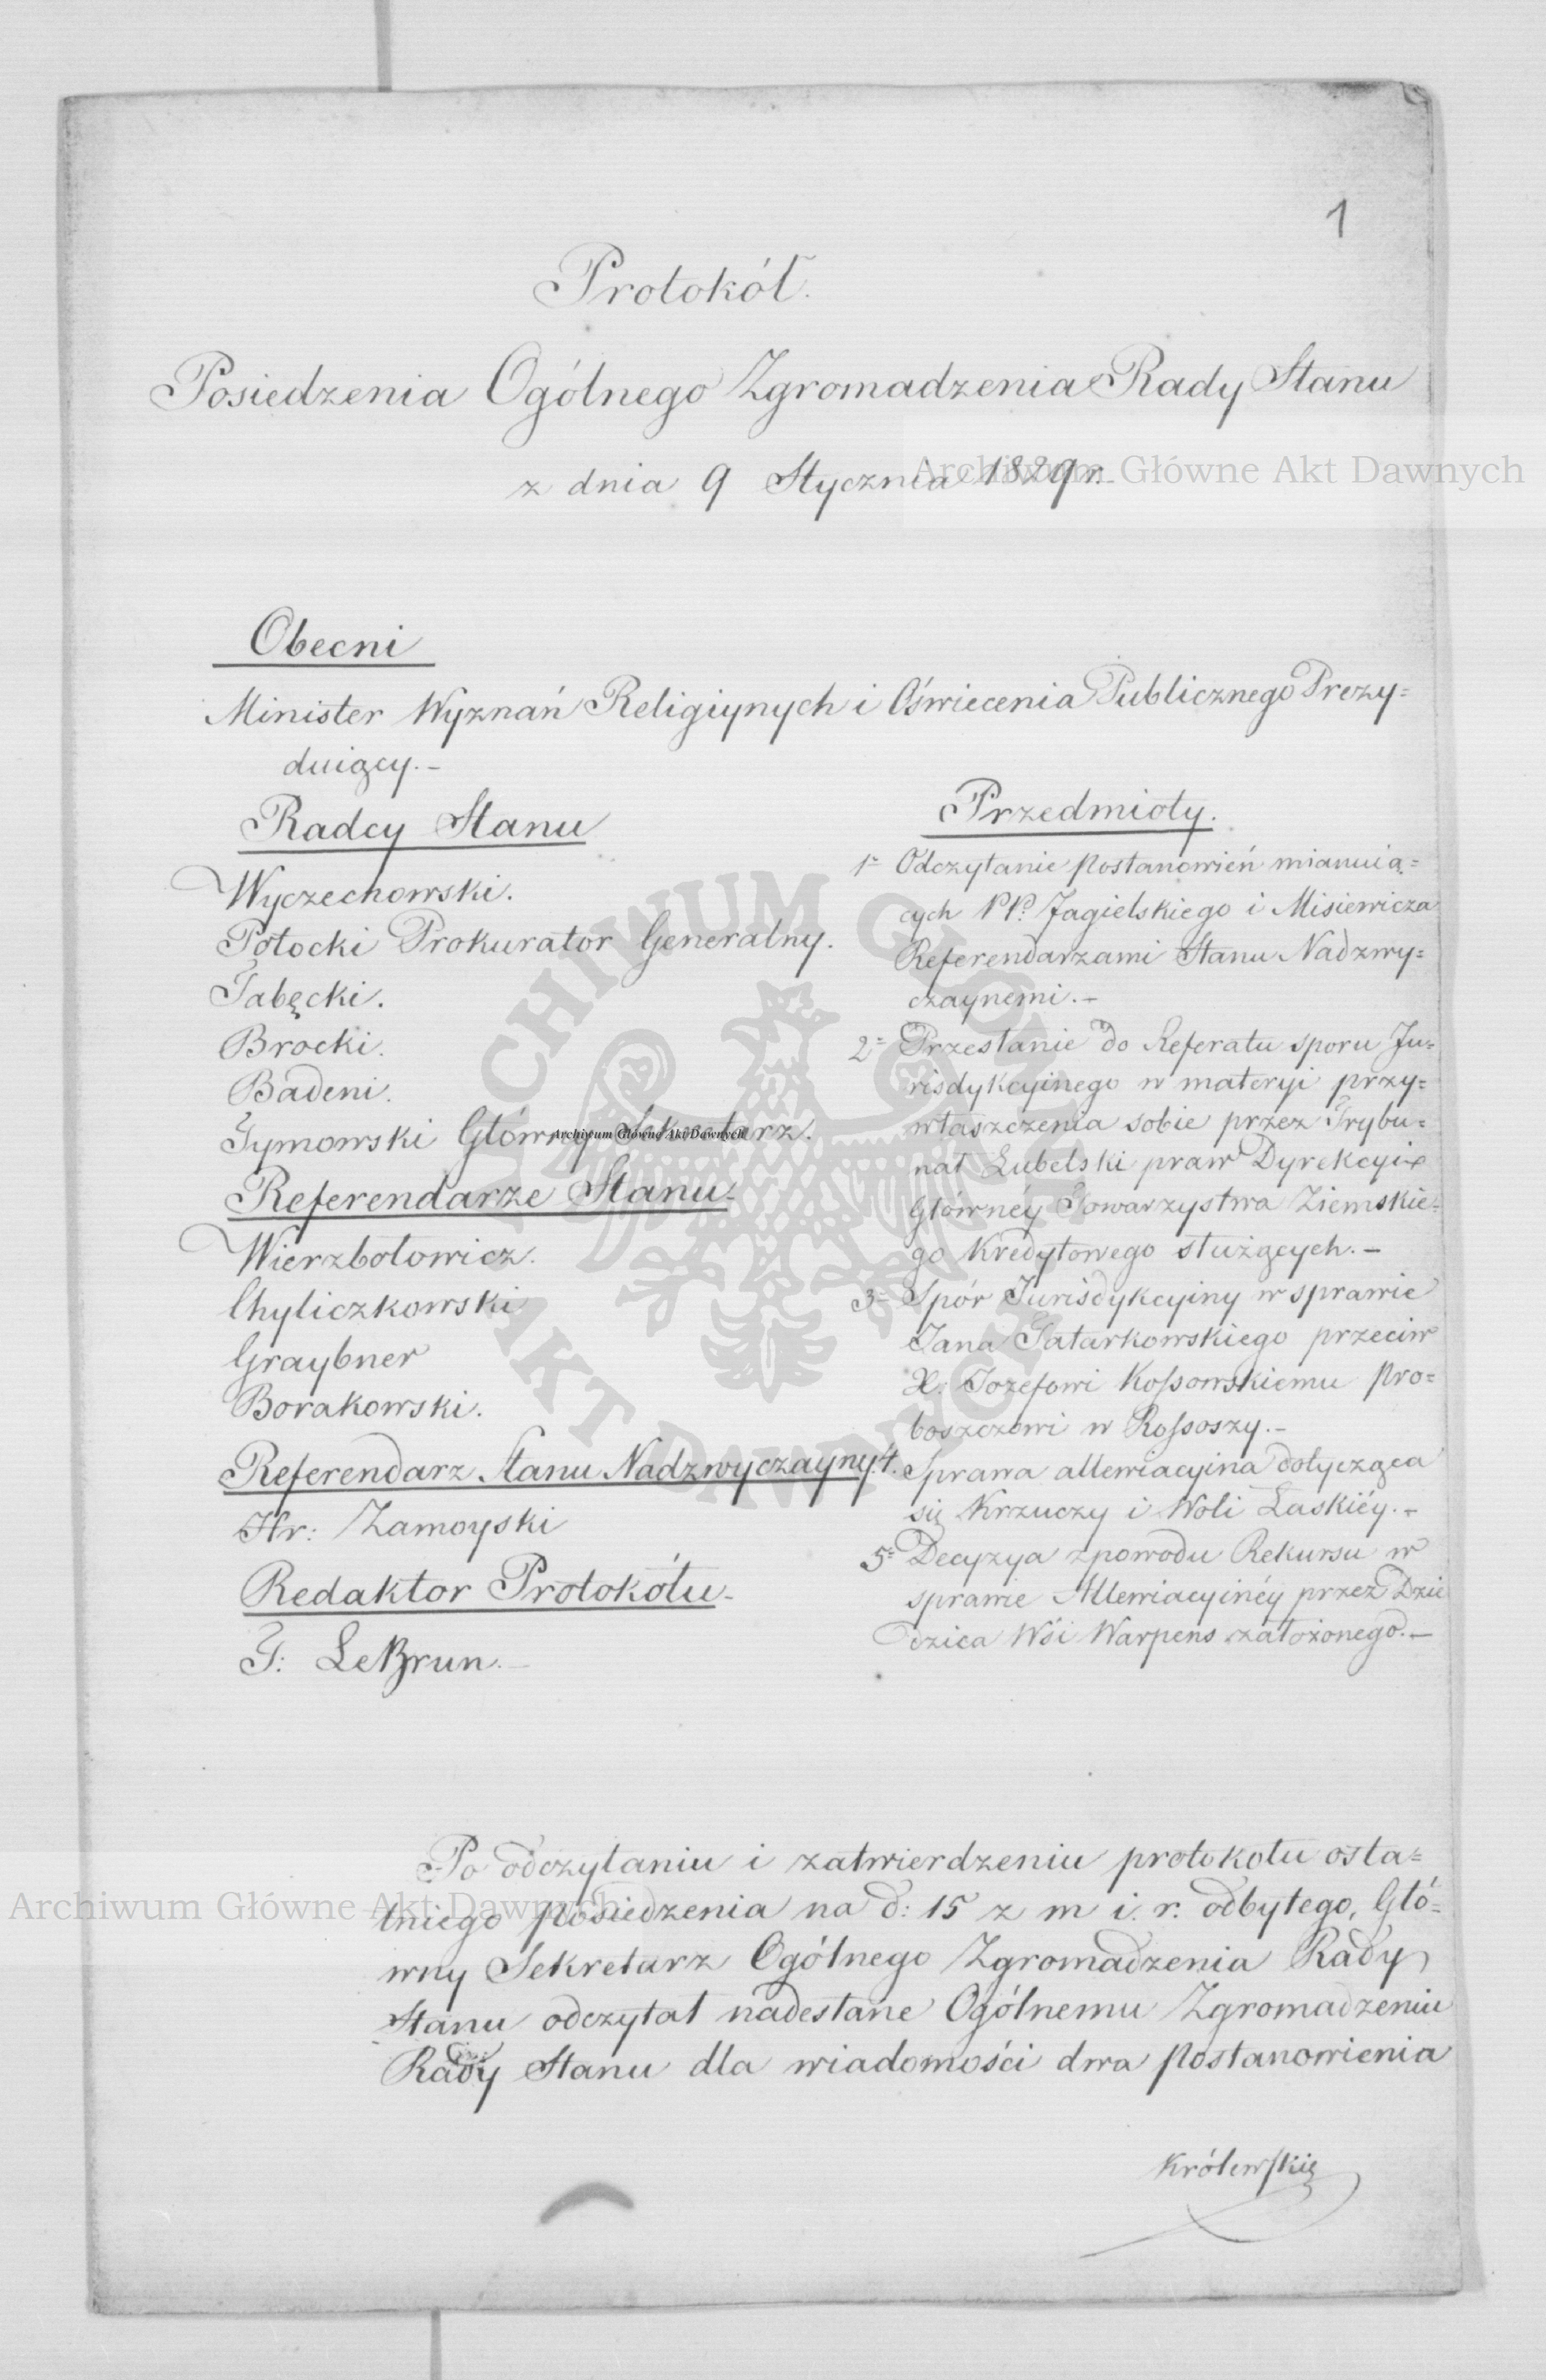 1
Protokół.
Posiedzenia Ogólnego Zgromadzenia Rady Stanu
z dnia 9 Stycznia 1829 r.
Archiwum Główne Akt Dawnych
Obecni
Minister Wyznań Religiynych i Oświecenia Publicznego Prezy=
duiący.-
Radcy Stanu
Wyczechowski.
Potocki Prokurator Generalny.
Tabęcki.
Brocki.
Badeni.
Tymowski Główny Sekretarz.
Archiwum Główne Akt Dawnych
Referendarze Stanu-
Wierzbołowicz.
Chyliczkowski
Graybner
Borakowski.
Referendarz Stanu Nadzwyczayny.
Hr: Zamoyski
Redaktor Protokółu-
J: LeBrun.-
Przedmioty.
1= Odczytanie postanowień mianuią=
cych PP. Jagielskiego i Misiewicza
Referendarzami Stanu Nadzwy=
czaynemi.-
2= Przesłanie do Referatu sporu Ju=
risdykcyinego w materyi przy=
właszczenia sobie przez Trybu=
nał Lubelski praw Dyrekcyi
Główney Towarzystwa Ziemskie=
go Kredytowego służących.-
3= Spór Jurisdykcyiny w sprawie
Jana Tatarkowskiego przeciw
X. Jozefowi Kossowskiemu Pro=
boszczowi w Rossoszy.-
4. Sprawa allewiacyina dotycząca
się Krzuczy i Woli Laskiéy.-
5= Decyzya zpowodu Rekursu w
sprawie Allewiacyinéy przez Dzie
dzica Wsi Warpens założonego.-
ARCHIWUM GŁÓWNE
AKT DAWNYCH
Po odczytaniu i zatwierdzeniu protokołu osta=
tniego posiedzenia na d: 15 z m i. r. odbytego, Głó=
Archiwum Główne Akt Dawnych
wny Sekretarz Ogólnego Zgromadzenia Rady
Stanu odczytał nadesłane Ogólnemu Zgromadzeniu
Rady Stanu dla wiadomości dwa postanowienia
Królewskie